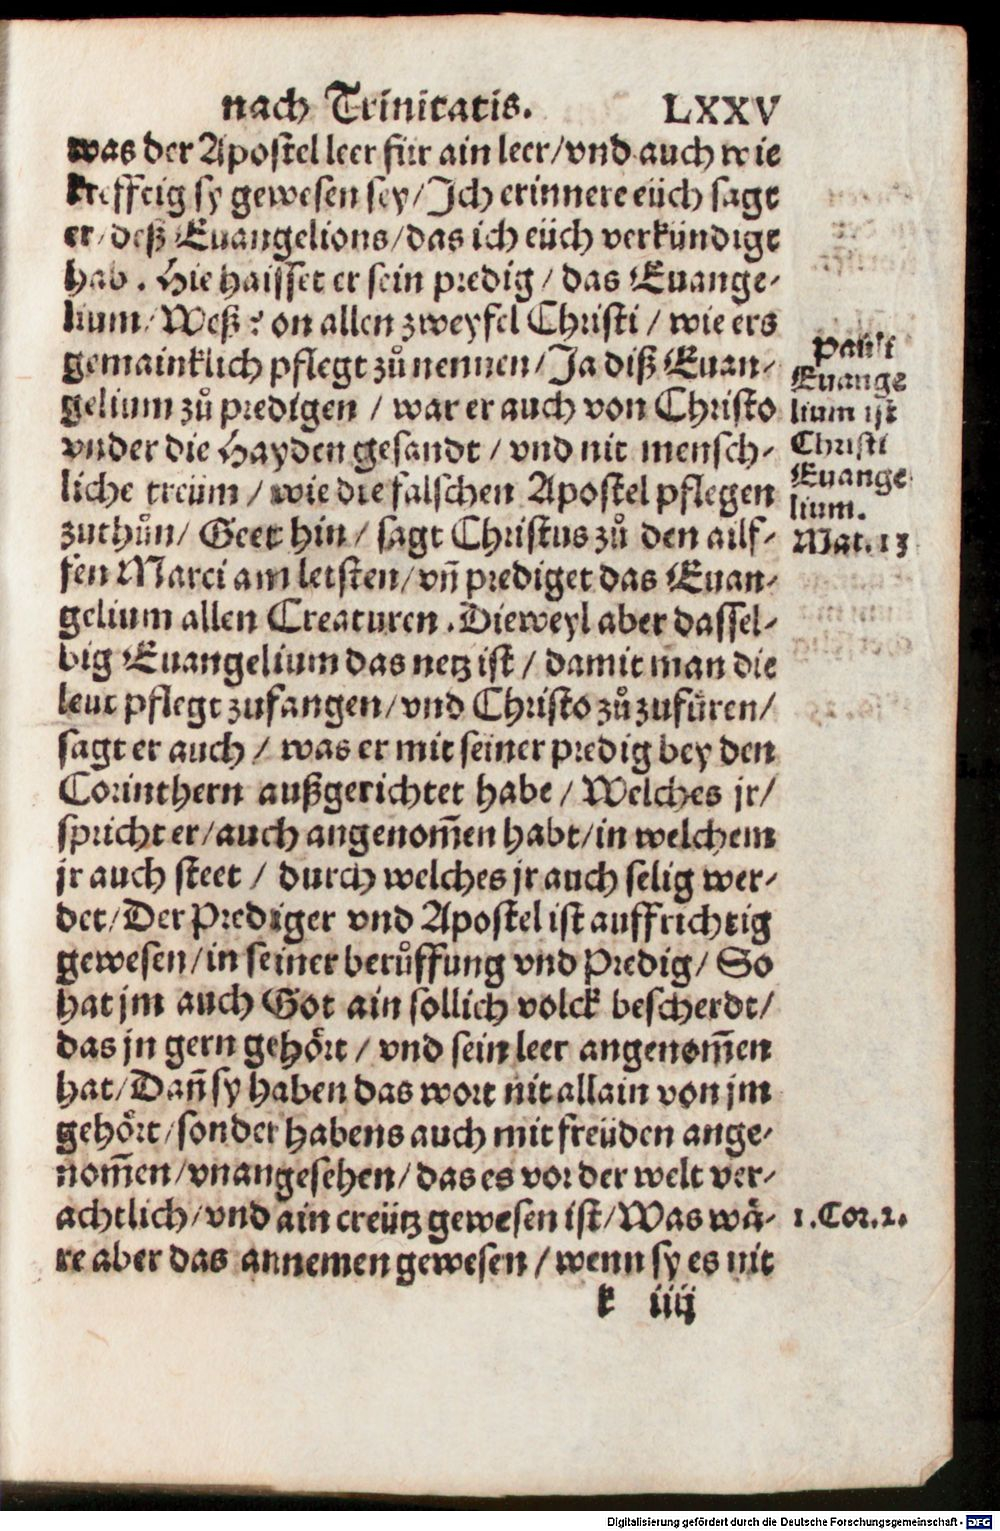 nach Trinitatis. LXXV
was der Apostel leer für ain leer/vnd auch wie
kreffteig sy gewesen sey/Ich erinnere eüch sagt
er/deß Euangelions/das ich eüch verkündigt
hab. Hie haisset er sein predig/das Euange-
lium/Weß? on allen zweyfel Christi/wie ers
gemainklich pflegt zů nennen/Ja diß Euan-
gelium zů predigen/war er auch von Christo
vnder die Hayden gesandt/vnd nit mensch-
liche treüm/wie die falschen Apostel pflegen
zuthůn/Geet hin/sagt Christus zů den ailf-
fen Marci am letsten/vñ prediget das Euan-
gelium allen Creaturen. Dieweyl aber dassel-
big Euangelium das netz ist/damit man die
leut pflegt zufangen/vnd Christo zů zufüren/
sagt er auch/was er mit seiner predig bey den
Corinthern außgerichtet habe/Welches jr/
spricht er/auch angenom̃en habt/in welchem
jr auch steet/durch welches jr auch selig wer-
det/Der Prediger vnd Apostel ist auffrichtig
gewesen/in seiner berůffung vnd Predig/So
hat jm auch Got ain sollich volck bescherdt/
das jn gern gehört/vnd sein leer angenom̃en
hat/Dañ sy haben das wort nit allain von jm
gehört/sonder habens auch mit freüden ange-
nom̃en/vnangesehen/das es vor der welt ver-
achtlich/vnd ain creütz gewesen ist/Was wä-
re aber das annemen gewesen/wenn sy es nit
k iiij
Pauli
Euange
lium ist
Christi
Euange
lium.
Mat.13
1.Cor.2.
Digitalisierung gefördert durch die Deutsche Forschungsgemeinschaft - DFG